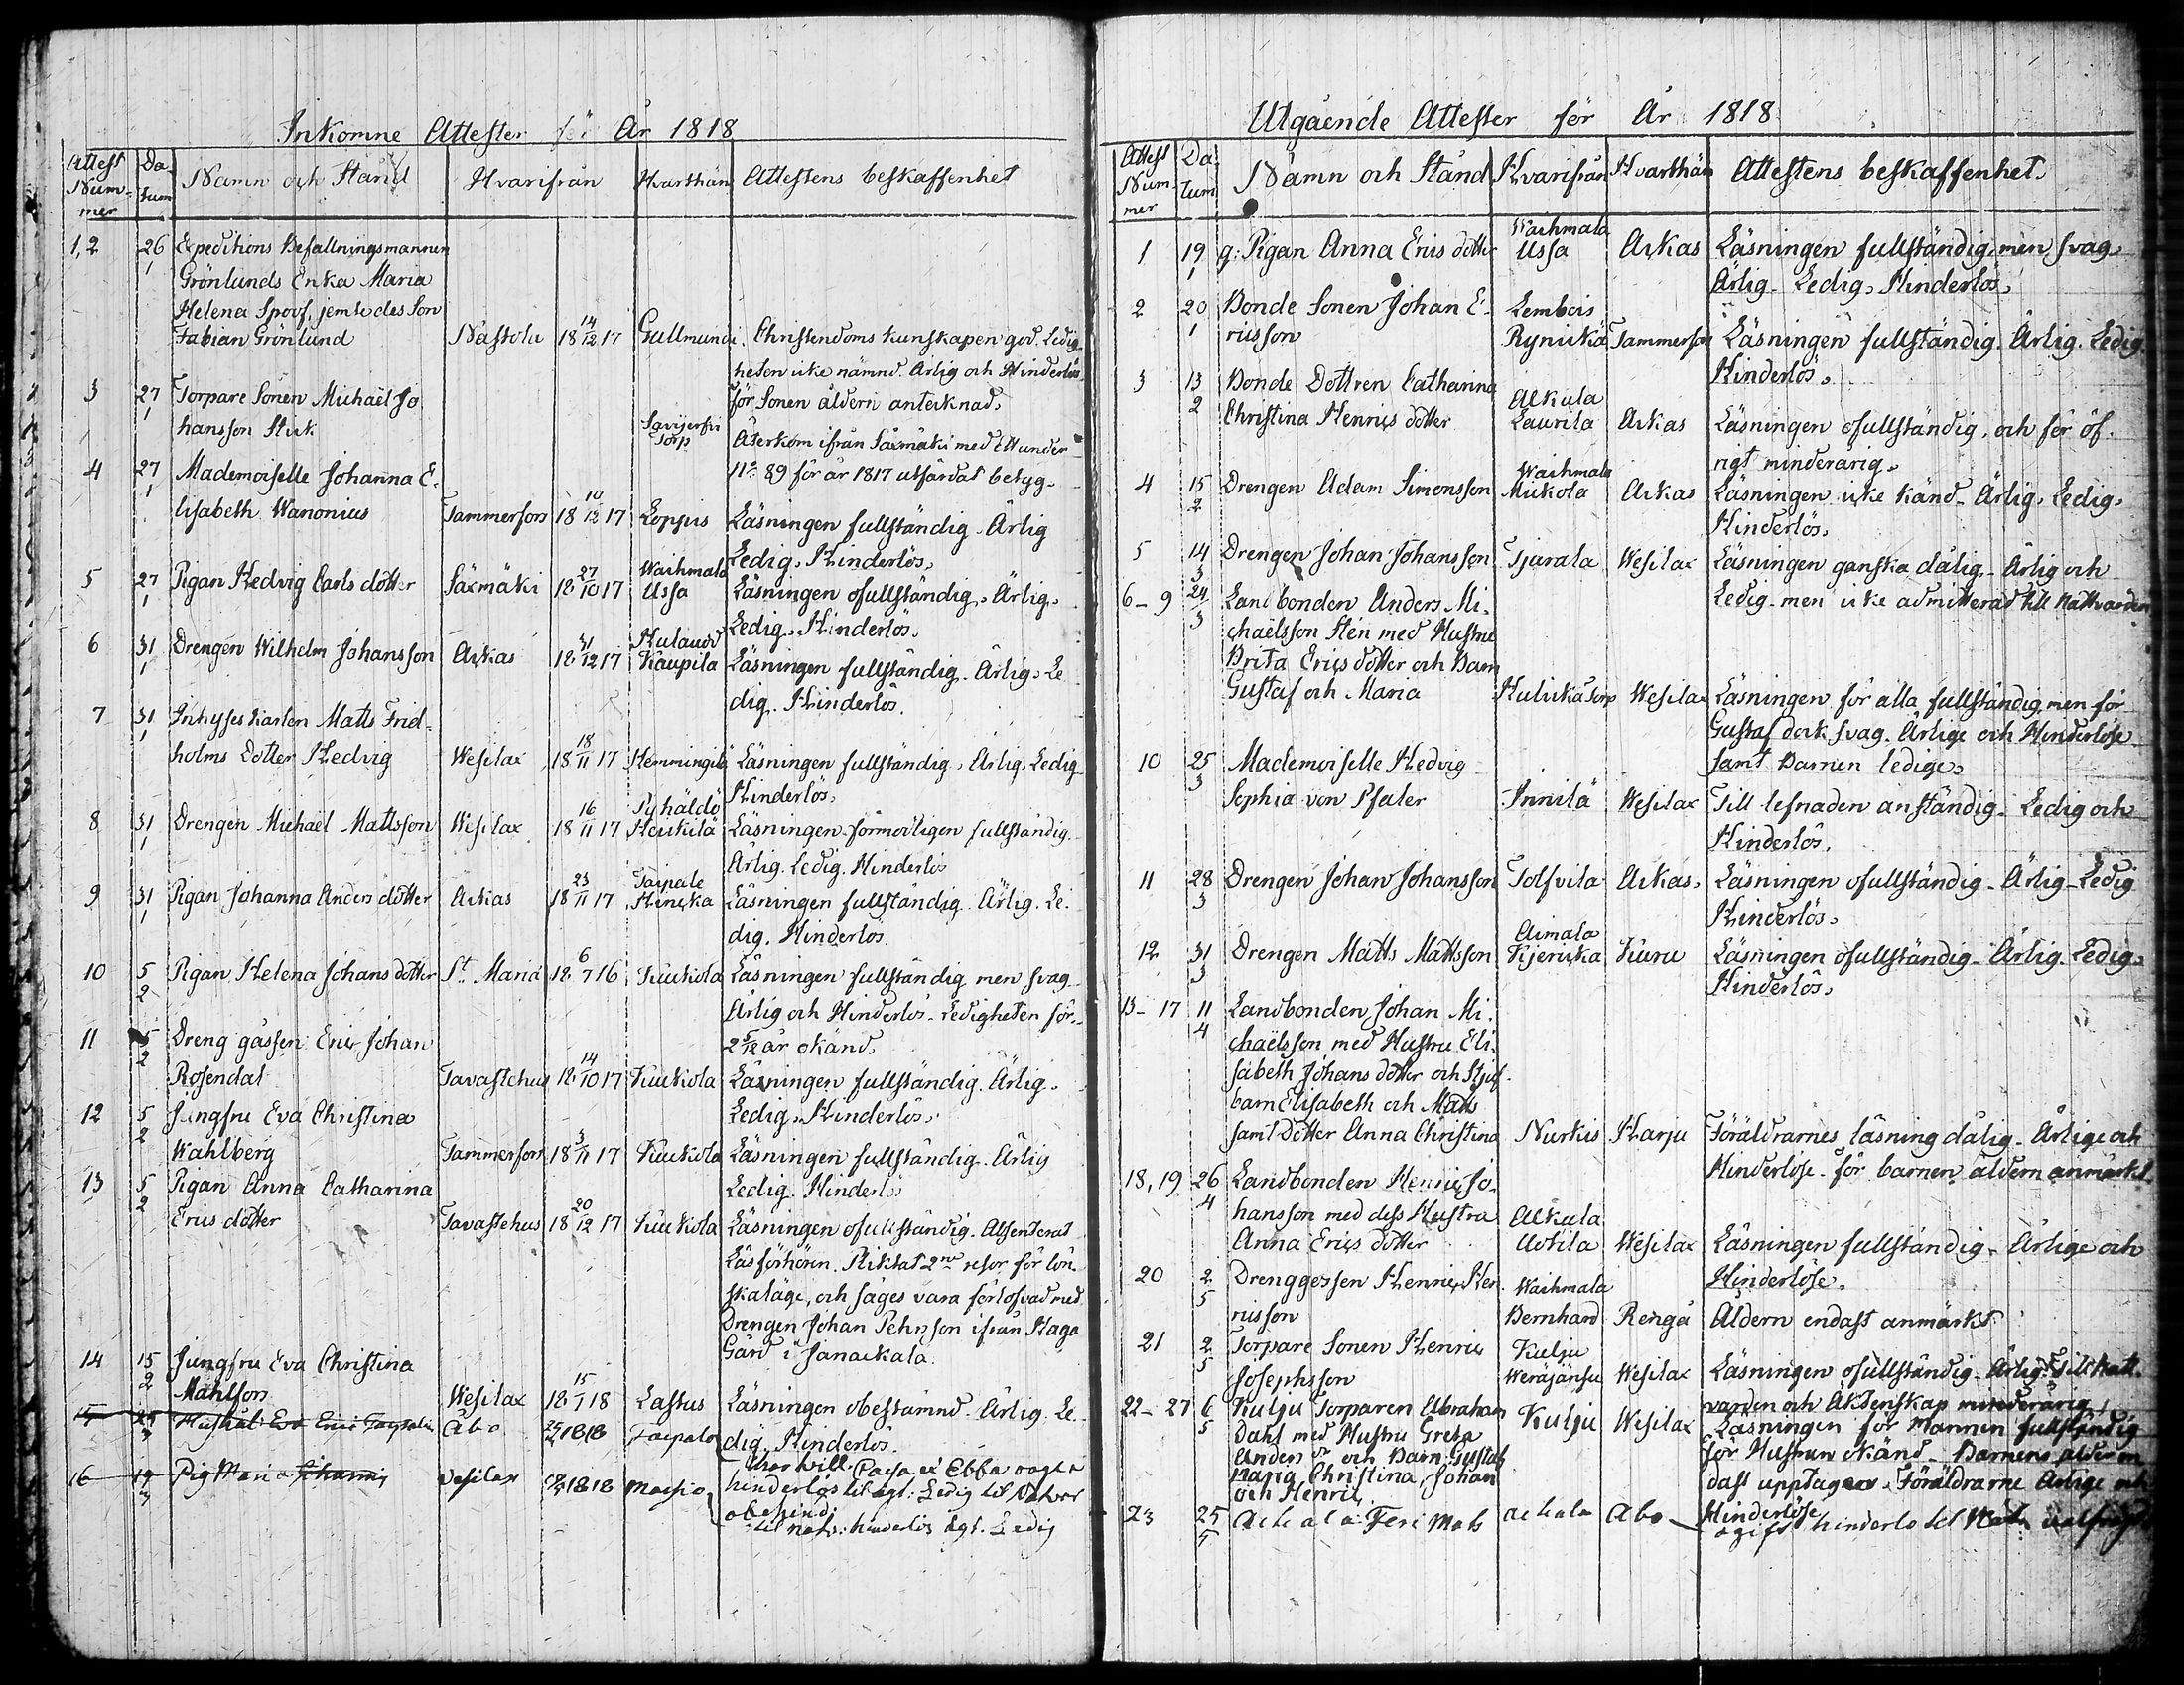 Inkomne Attester för År 1818
Attest Nummer
Datum
Namn och Stånd
Hvarifrån
Hvarthän
Attestens beskaffenhet
1, 2 26/1 Expeditions Befallningsmannen
Grönlunds Enka Maria
Helena Spoof, jemte des Son
Fabian Grönlund Nastola 18 14/12 17 Gullmundi. Christendoms kunskapen god. Ledig-
heten icke nämnd. Ärlig och Hinderlös
för Sonen åldern antecknad.
3 27/1 Torpare Sonen Michaël Jo
hansson Stick Savijerfvi Torp Återkom ifrån Säxmäki med Ett under
No 89 för år 1817 utfärdat betyg.
4 27/1 Mademoiselle Johanna E.
lisabeth Wanonius Tammerfors 18 10/12 17 Loppis Läsningen fullständig. Ärlig
Ledig. Hinderlös.
5 27/1 Pigan Hedvig Carls dotter Säxmäki 18 27/10 17 Waihmala Ussa Läsningen ofullständig. Ärlig.
Ledig. Hinderlös.
6 31/1 Drengen Wilhelm Johansson Ackas 18 31/12 17 Kaupila Läsningen fullständig. Ärlig. Le
dig. Hinderlös.
7 31/1 Inhyses Karlen Matts Frid-
holms Dotter Hedvig Wesilax 18 18/11 17 Hemmingilä Läsningen fullständig. Ärlig. Ledig
Hinderlös.
8 31/1 Drengen Michaël Mattsson Wesilax 18 16/11 17 Pyhäldö Heickilä Läsningen förmodligen fullständig
Ärlig. Ledig. Hinderlös
9 31/1 Pigan Johanna Anders dotter Ackas 18 23/11 17 Taipale Hincka Läsningen fullständig. Ärlig. Le.
dig. Hinderlös.
10 5/2 Pigan Helena Johans dotter St Maria 18 6/7 16 Kuckola Läsningen fullständig men svag
Ärlig och Hinderlös. Ledigheten för
2 5/12 år okänd.
11 5/2 Dreng gåssen Eric Johan
Rosendal Tavastehus 18 14/10 17 Kuckola Läsningen fullständig. Ärlig.
Ledig. Hinderlös.
12 5/2 Jungfru Eva Christina
Wahlberg Tammerfors 18 3/11 17 Kuckola Läsningen fullständig. Ärlig
Ledig. Hinderlös
13 5/2 Pigan Anna Catharina
Erics dotter Tavastehus 18 20/12 17 Kuckola Läsningen ofullständig. Absenterat
Läsförhören. Pliktat 2ne resor för lön
skaläge, och säges vara förlofvad med
Drengen Johan Pehrsson ifrån Haga
Gård i Janackala.
14 15/2 Jungfru Eva Christina
Mahlfors Wesilax 18 15/1 18 Lastus Läsningen obestämnd. Ärlig. Le
dig. Hinderlös.
15 Eva Åbo 1818 Taipale
16 19 Pig Maria Johanni Vesilax 1818
hinderlös til Ledig til
til natv: hinderlös Ledig
Utgående Attester för År 1818
Attest Nummer
Datum
Namn och Stånd
Hvarifrån
Hvarthän
Attestens beskaffenhet.
1 19/1 g: Pigan Anna Erics dotter Waihmala Ussa Ackas Läsningen fullständig, men svag.
Ärlig. Ledig. Hinderlös.
2 20/1 Bonde Sonen Johan E-
ricsson Lembois Rynickä Tammerfors Läsningen fullständig. Ärlig. Ledig.
Hinderlös.
3 13/2 Bonde Dottren Catharina
Christina Henrics dotter Alkula Laurila Ackas Läsningen ofullständig, och för öf.
rigt minderårig.
4 15/2 Drengen Adam Simonsson Waihmala Mickola Ackas Läsningen icke känd. Ärlig. Ledig.
Hinderlös.
5 14/3 Drengen Johan Johansson Tjurala Wesilax Läsningen ganska dålig. Ärlig och
Ledig men icke admitterad till Nattvarden
6-9 24/3 Landbonden Anders Mi-
chaëlsson Stén med Hustru
Brita Erics dotter och Barn
Gustaf och Maria Hulickas torp Wesilax Läsningen för alla fullständig, men för
Gustaf dock svag. Ärlige och Hinderlöse
samt Barnen ledige.
10 25/3 Mademoiselle Hedvig
Sophia von Pfaler Innilä Wesilax Till lefnaden anständig. Ledig och
Hinderlös.
11 28/3 Drengen Johan Johansson Tolfvila Ackas. Läsningen ofullständig. Ärlig. Ledig
Hinderlös.
12 31/3 Drengen Matts Mattsson Aimala Kjericka Kuru Läsningen ofullständig. Ärlig. Ledig.
Hinderlös.
13-17 11/4 Landbonden Johan Mi.
chaëlsson med Hustru Eli.
sabeth Johans dotter och Stjuf.
barn Elisabeth och Matts
samt Dotter Anna Christina Nurkis Harju Föräldrarnes läsning dålig. Ärlige och
Hinderlöse. för barnen åldern anmärkt.
18, 19 26/4 Landbonden Henric Jo.
hansson med dess Hustru
Anna Erics dotter Alkula Uotila Wesilax Läsningen fullständig. Ärlige och
Hinderlöse.
20 2/5 Drenggossen Henric Hen
ricsson Waihmala Bernhard Rengå Åldern endast anmärkt.
21 2/5 Torpare Sonen Henric
Josephsson Kulju Weräjänsu Wesilax Läsningen ofullständig. Ärlig. Till Natt.
varden och Äktenskap minderårig
22-27 6/5 Kulju Torparen Abraham
Dahl med Hustru Greta
Anders dr och Barn Gustaf
Maria Christina, Johan
och Henric Kulju Wesilax Läsningen för Mannen fullständig
för Hustrun okänd. Barnens ålder en
dast upptagen. Föräldrarne Ärlige och
Hinderlöse
23 25/5 Mats Åbo
ogift hinderlö til